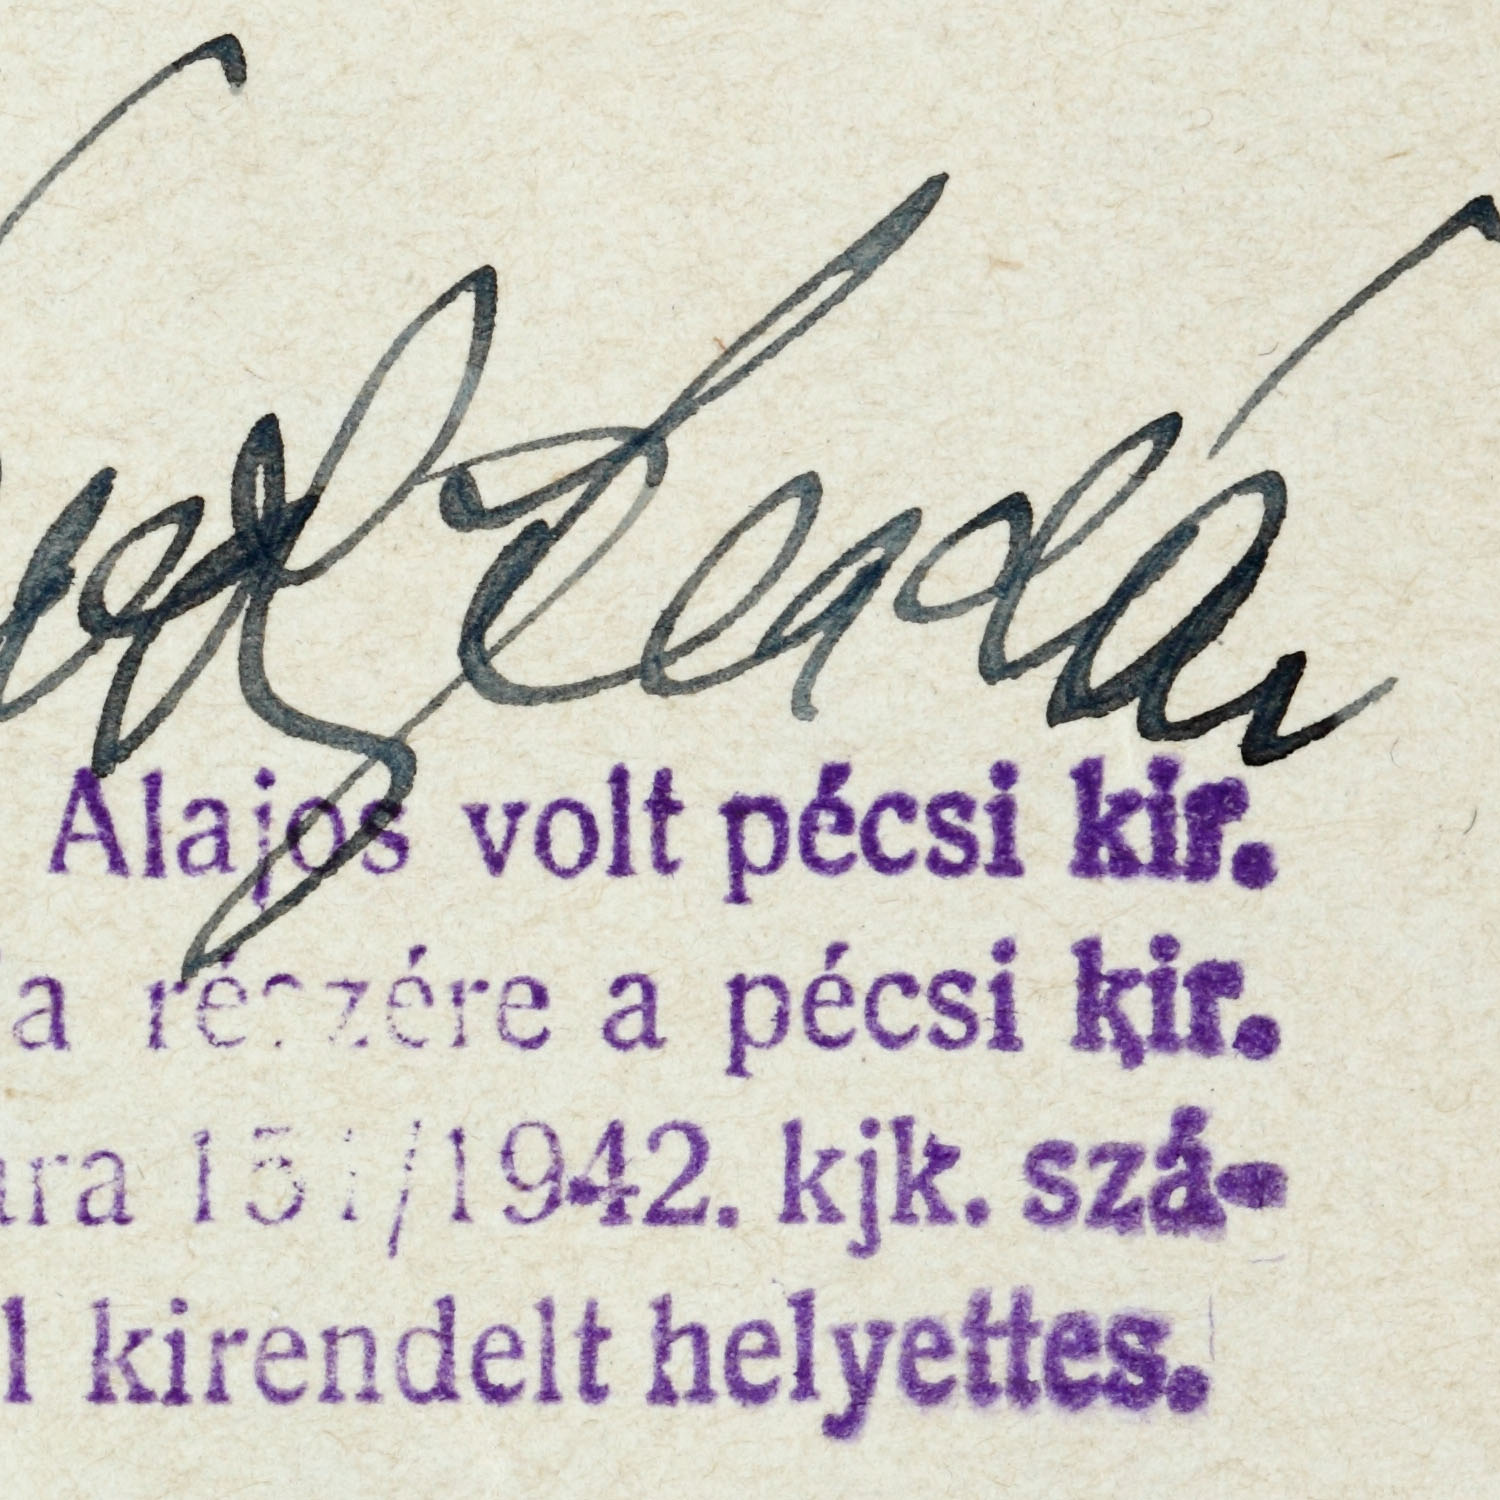 Alajos volt pécsi kir.
a részére a pécsi kir.
ura 151/1942. kjk. szá-
l kirendelt helyettes.